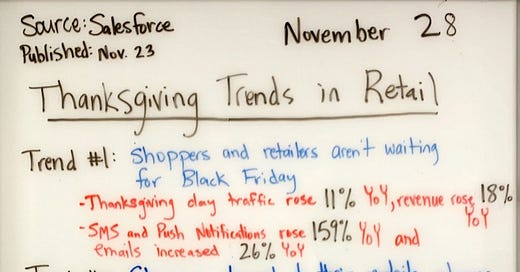 Source: Salesforce
November 28
Published: Nov. 23
Thanksgiving Trends in Retail
Trend #1: Shoppers and retailers aren't waiting
for Black Friday
- Thanksgiving day traffic rose 11% YoY, revenue rose 18%
YoY
- SMS and Push Notifications rose 159% YoY and
emails increased 26% YoY